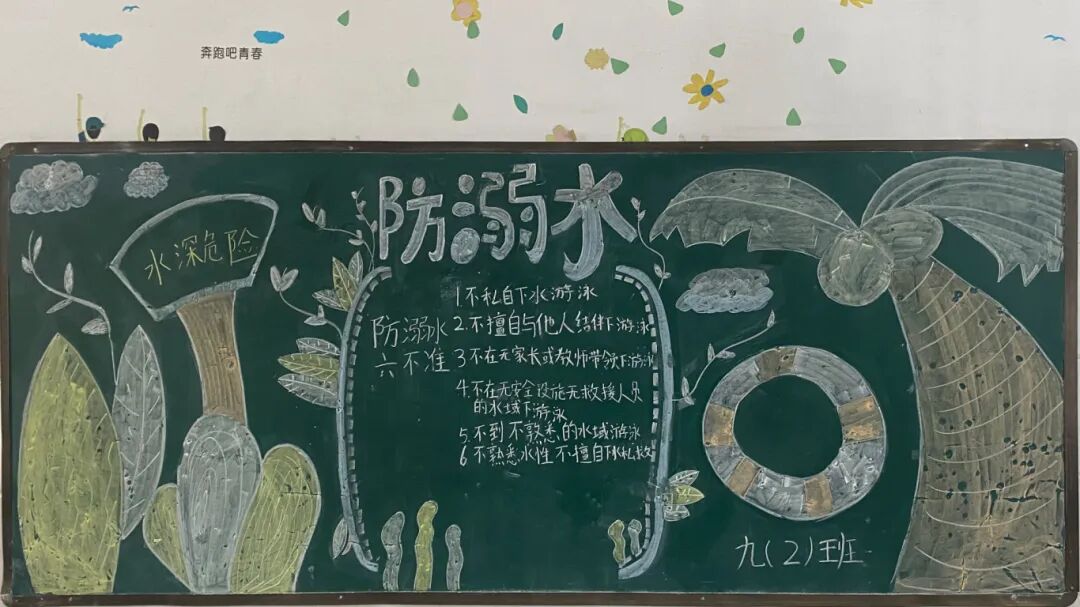 奔跑吧青春
防溺水
水深危险
防溺水
六不准
1不私自下水游泳
2.不擅自与他人结伴下游泳
3不在无家长或教师带领下游泳
4.不在无安全设施无救援人员
的水域下游泳
5.不到不熟悉的水域游泳
6不熟悉水性不擅自下水私救
九(2)班